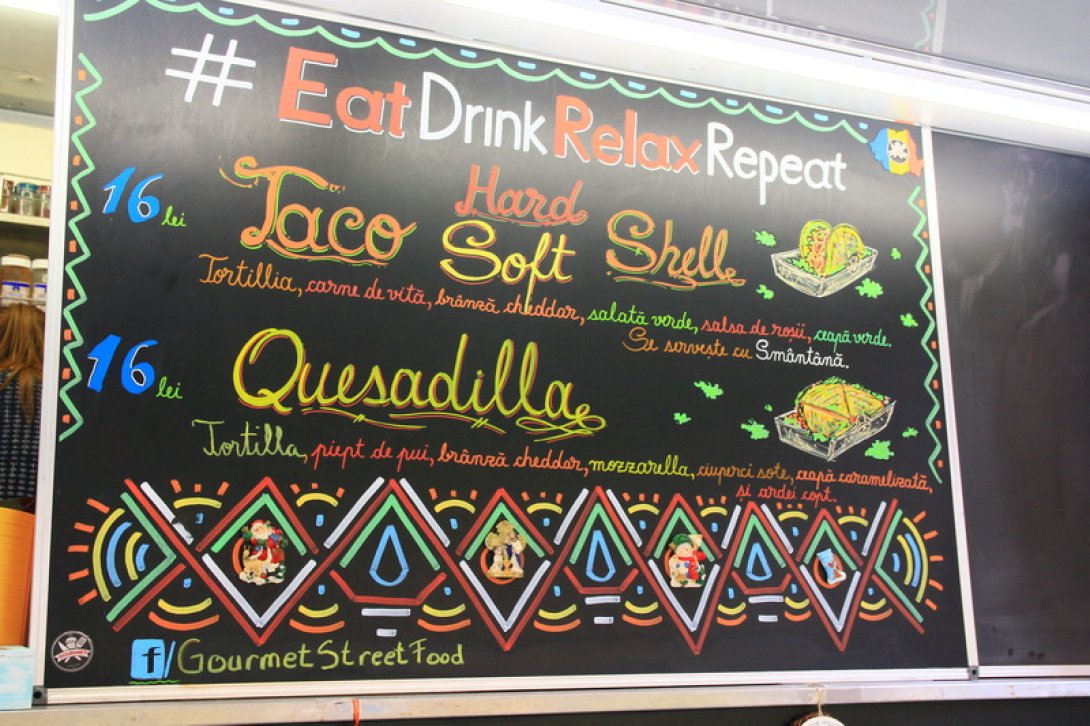 # Eat Drink Relax Repeat
16 lei
Taco Hard Soft Shell
Tortillia, carne de vită, brânză cheddar, salată verde, salsa de roșii, ceapă verde.
Se servește cu Smântână.
16 lei
Quesadilla
Tortilla, piept de pui, brânză cheddar, mozzarella, ciuperci sote, ceapă caramelizată,
și ardei copt.
f/GourmetStreetFood